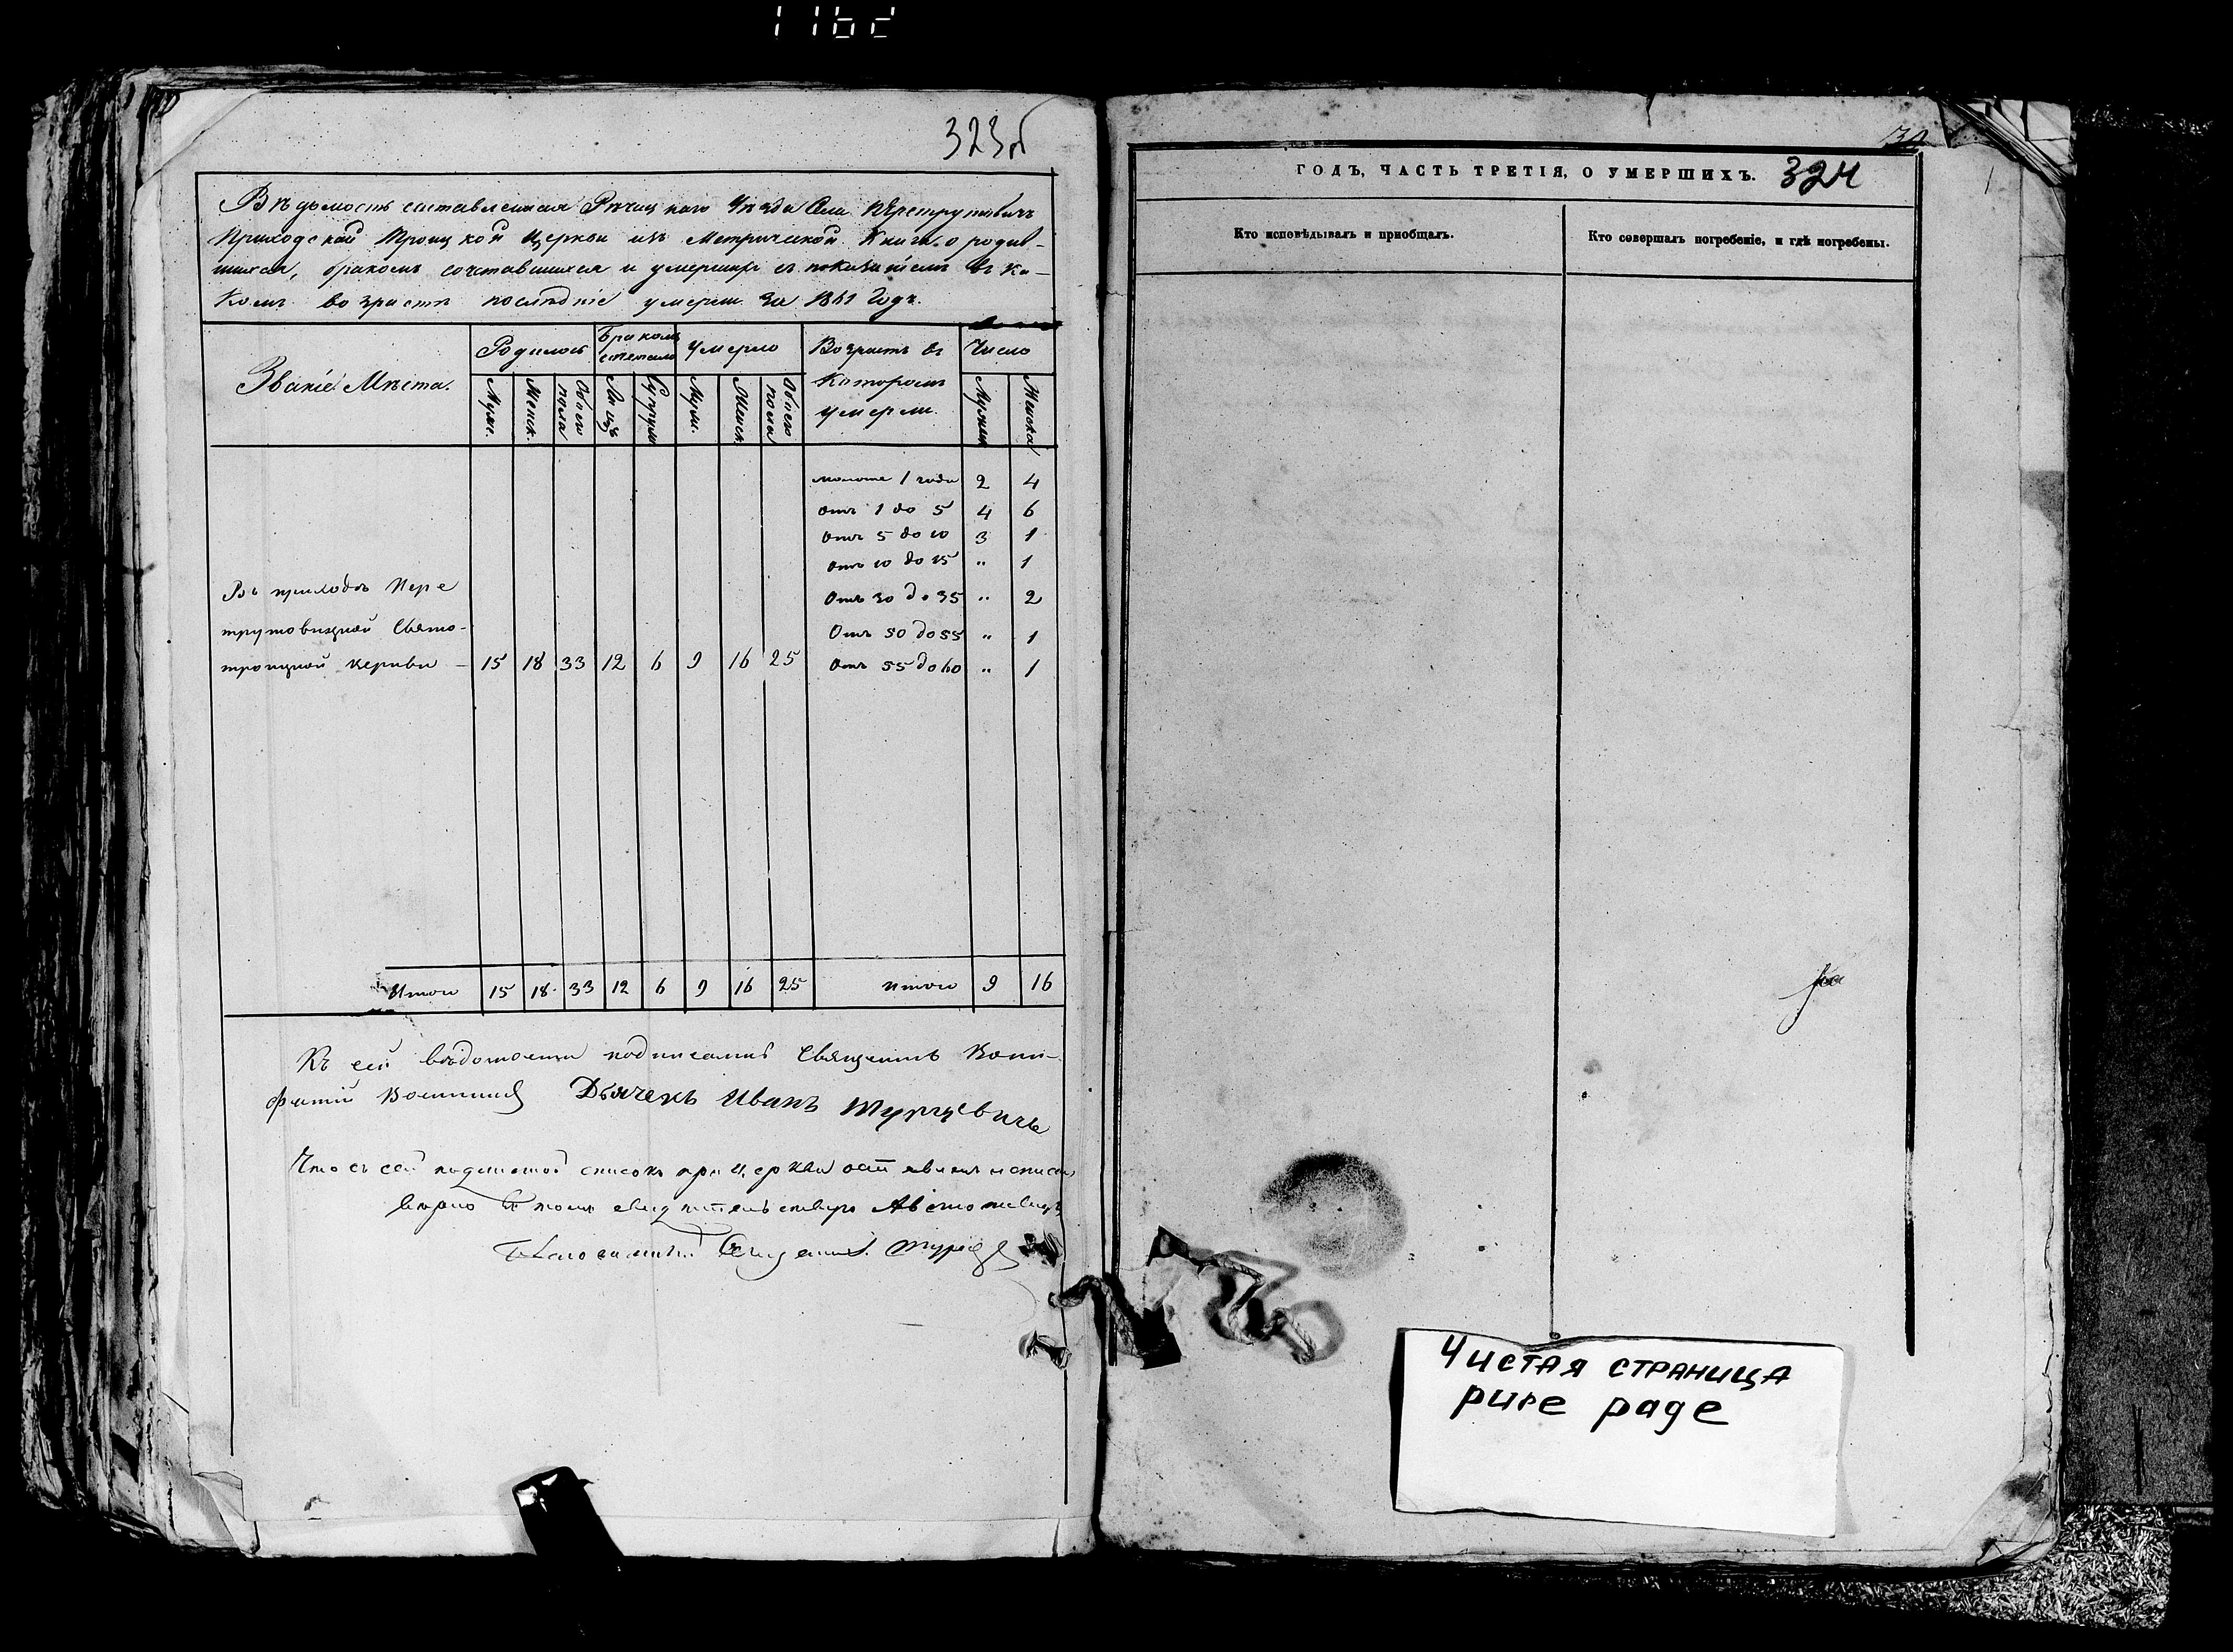 1162
323об
Вѣдомость составленная Рѣчицкаго Уѣзда Села Перетрутовичъ
Приходской Троицкой Церкви изъ Метрической Книги о родив-
шихся, бракомъ сочтавшихся и умершихъ съ показаніемъ въ ка-
комъ возрастѣ послѣдніе умерли за 1861 Годъ.
Званіе Мѣста.
Родилось
Бракомъ
Умерло
Возрастъ въ
Которомъ
умерли.
Число
Муж.
Женск.
Обоего пола
Лицъ
Супруж
Муж.
Женск.
Обоего пола
Мужска
Женска
моложе 1 года 2 4
Отъ 1 до 5 4 6
Отъ 5 до 10 3 1
Отъ 10 до 15 " 1
Отъ 30 до 35 " 2
Отъ 50 до 55 " 1
Отъ 55 до 60 " 1
Въ приходѣ Пере
трутовицкой Свято-
троицкой церкви - 15 18 33 12 6 9 16 25
Итого 15 18 33 12 6 9 16 25 итого 9 16
Къ сей вѣдомости подписались Священикъ Вони-
фатій Дьячекъ Иванъ Турцевичъ
Что съ сей списокъ при церкви
вѣрно въ томъ свидѣтельствую
Благочинный
ГОДЪ, ЧАСТЬ ТРЕТІЯ, О УМЕРШИХЪ. 324
Кто исповѣдывалъ и приобщалъ.
Кто совершалъ погребеніе, и гдѣ погребены.
Чистая страница
pure page